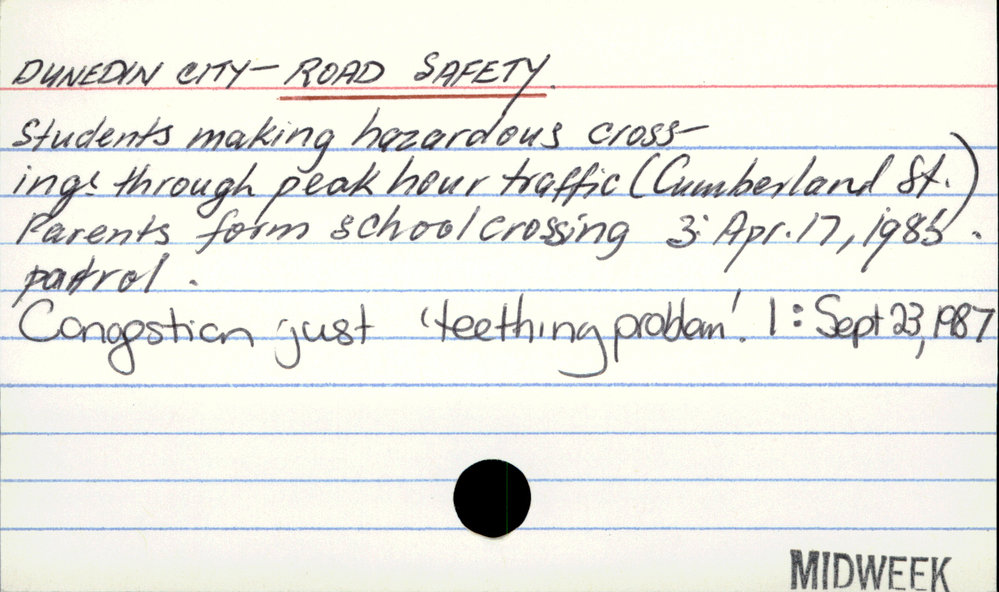 DUNEDIN CITY - ROAD SAFETY.
Students making hazardous cross-
ings through peak hour traffic (Cumberland St.)
Parents form school crossing 3: Apr. 17, 1985.
patrol.
Congestion just 'teething problem'. 1: Sept 23, 1987
MIDWEEK